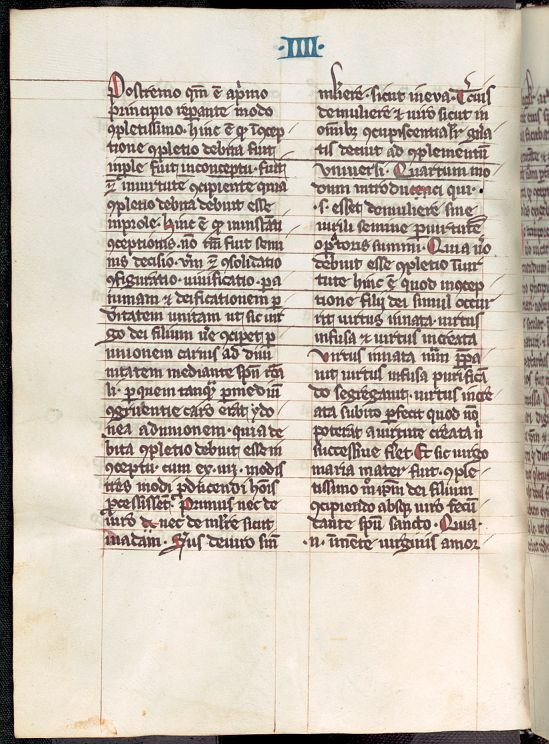 ·IIII·
Postremo qm̄ ē a pͥmo
principio reparante modo
ꝯpletissimo · hinc ē ꝙ ꝯcep
tione ꝯpletio debita fuit
imple fuit in conceptu · fuit
⁊ in uirtute ꝯcipiente quia
ꝯpletio debita debuit esse
in prole · hinc ē ꝙ in instāti
ꝯceptionis · nō tm̄ fuit semi
nis decisio · ꝯsolidatio
ꝯfiguratio · uiuificatio · ꝑ a
nimam ⁊ deificationem ꝑ
d'itatem unitam ut sic uir
go dei filium ue͛ ꝯciperet ꝑ
unionem carnis ad diui
nitatem mediante spū
li · ꝑ quem tanqͣ ꝑ mediū
ꝯgruentie caro erat ydo
nea ad unionem · quia de
bita ꝯpletio debuit esse in
ꝯceptu · cum ex · iiij · modis
tres modi ꝓducendi hoīs
ꝓcessissēt · Primus nec de
uiro nec de mlr̄e sicut
in adam · Scͩus de uiro sine
mliere · sicut in eua · Tcius
de muliere ⁊ uiro sicut in
omībꝫ ꝯcupiscentialr̄ gna
tis decuit ad ꝯplementū
vniuersi · Quartum mo
dum introduci qui ·
· s · esset de muliere sine
uirili semine ꝑ uirtutē
opatoris summi · Quia vͦ
debuit esse ꝯpletio ī uir
tute hinc ē quod in ꝯcep
tione filij dei simul ꝯcur
rit uirtus innata · uirtus
infusa ⁊ uirtus increata
Virtus innata mͣm ꝑpa
uit uirtus infusa purificā
do segregauit · uirtus incre
ata subito perfecit quod nō
poterat a uirtute creata n̄
successiue fieri · Et sic uirgo
maria mater fuit · ꝯple
tissimo mͦ ipm̄ dei filium
ꝯcipiendo absqꝫ uiro fecū
dante spū sancto · Quia ·
· n · in mente uirginis amor